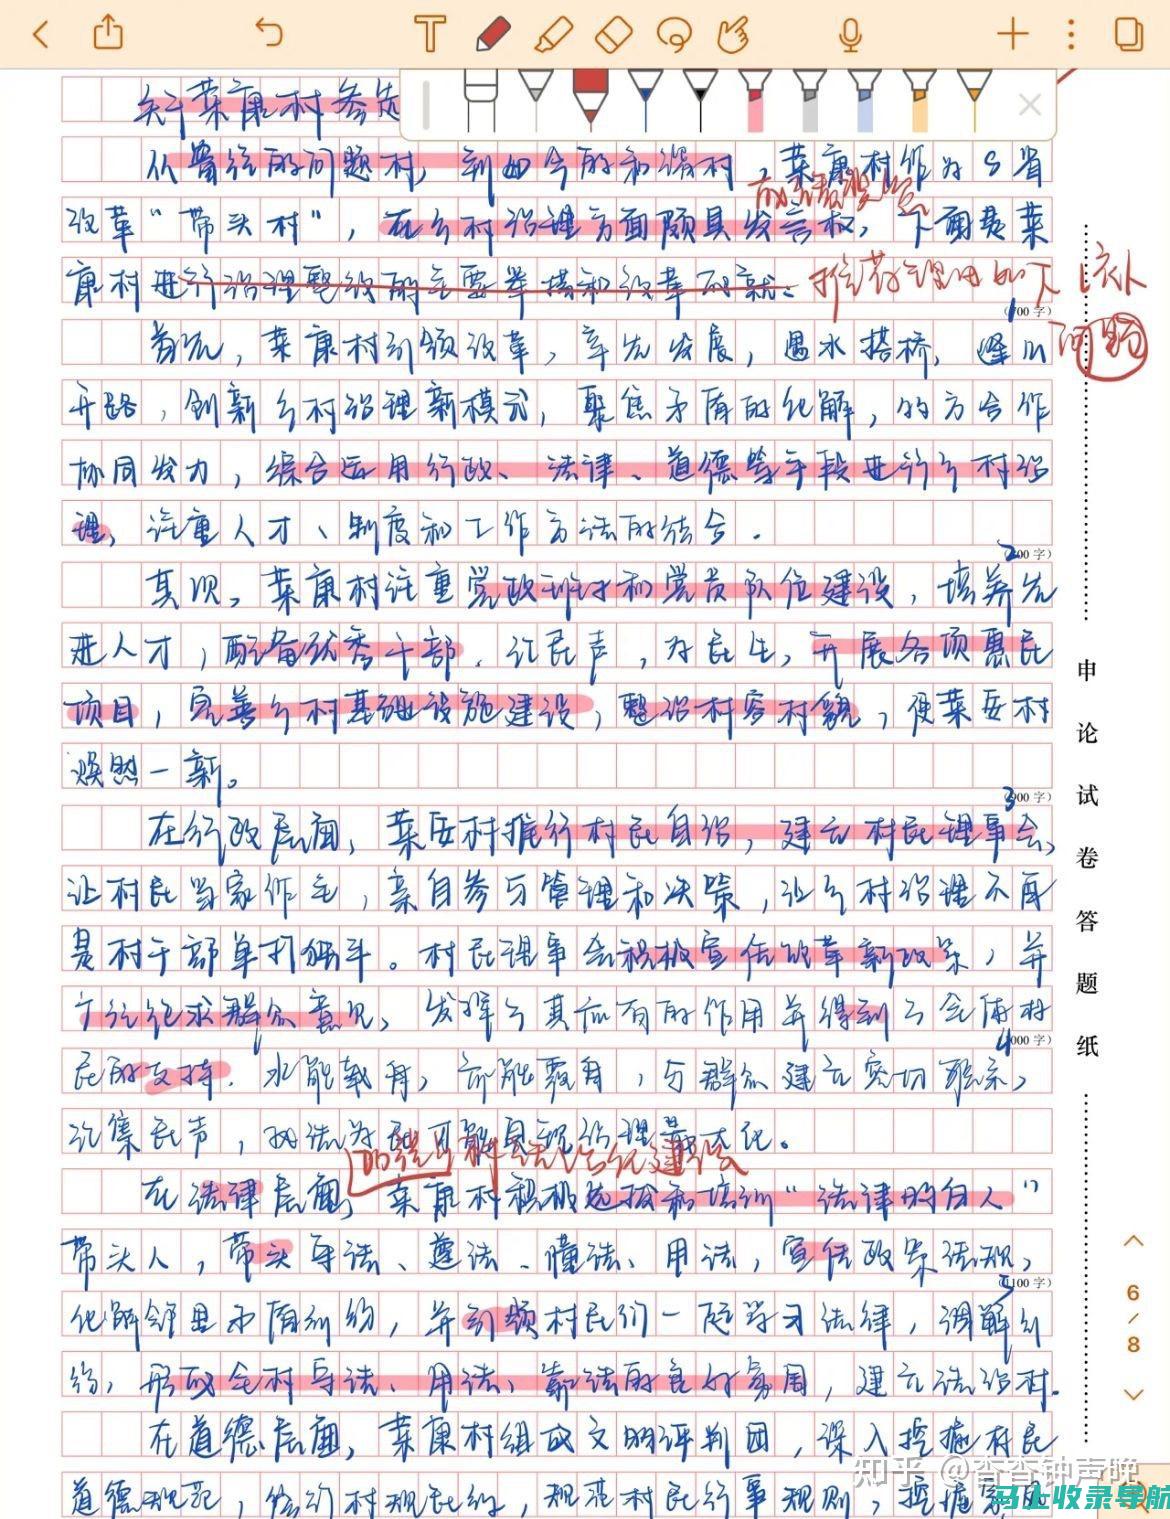 关于菜康村参选
从曾经的问题村，到如今的和谐村，菜康村作为S省
改革“带头村”，在乡村治理方面颇具发言权，下面是菜
康村进行治理整改的主要举措和改革成就：
推荐理由如下
补
问题
首先，菜康村引领改革，率先发展，遇水搭桥，逢山
开路，创新乡村治理新模式，聚焦矛盾的化解，的方合作
协同发力，综合运用行政、法律、道德等手段进行乡村治
理，注重人才、制度和工作方法的结合．
其次，菜康村注重党政班子和党员队伍建设，培养先
进人才，配备优秀干部．让民声，为民生，开展各项惠民
项目，完善乡村基础设施建设，整治村容村貌，使菜康村
焕然一新。
（900 字）
在行政层面，菜康村推行村民自治，建立村民理事会，
让村民当家作主，亲自参与管理和决策，让乡村治理不再
是村干部单打独斗。村民理事会积极宣传改革新政策，并
广泛征求群众意见，发挥了其应有的作用并得到了全体村
民的支持．水能载舟，亦能覆舟，与群众建立密切联系，
汇集民声，治理最大化。
法治化建设
在法律层面，菜康村积极选拔和培训“法律明白人”
带头人，带头守法、遵法、懂法、用法，宣传政策法规，
（1100 字）
化解邻里矛盾纠纷，并引领村民们一起学习法律，调解纠
纷，形成全村守法、用法、靠法的良好氛围，建立法治村．
在道德层面，菜康村组成文明评判团，深入挖掘村民
道德规范，修订村规民约，规范村民行事规则，挖掘
申论试卷答题纸
6/8
知乎 @杳杳钟声晚
马上收录导航